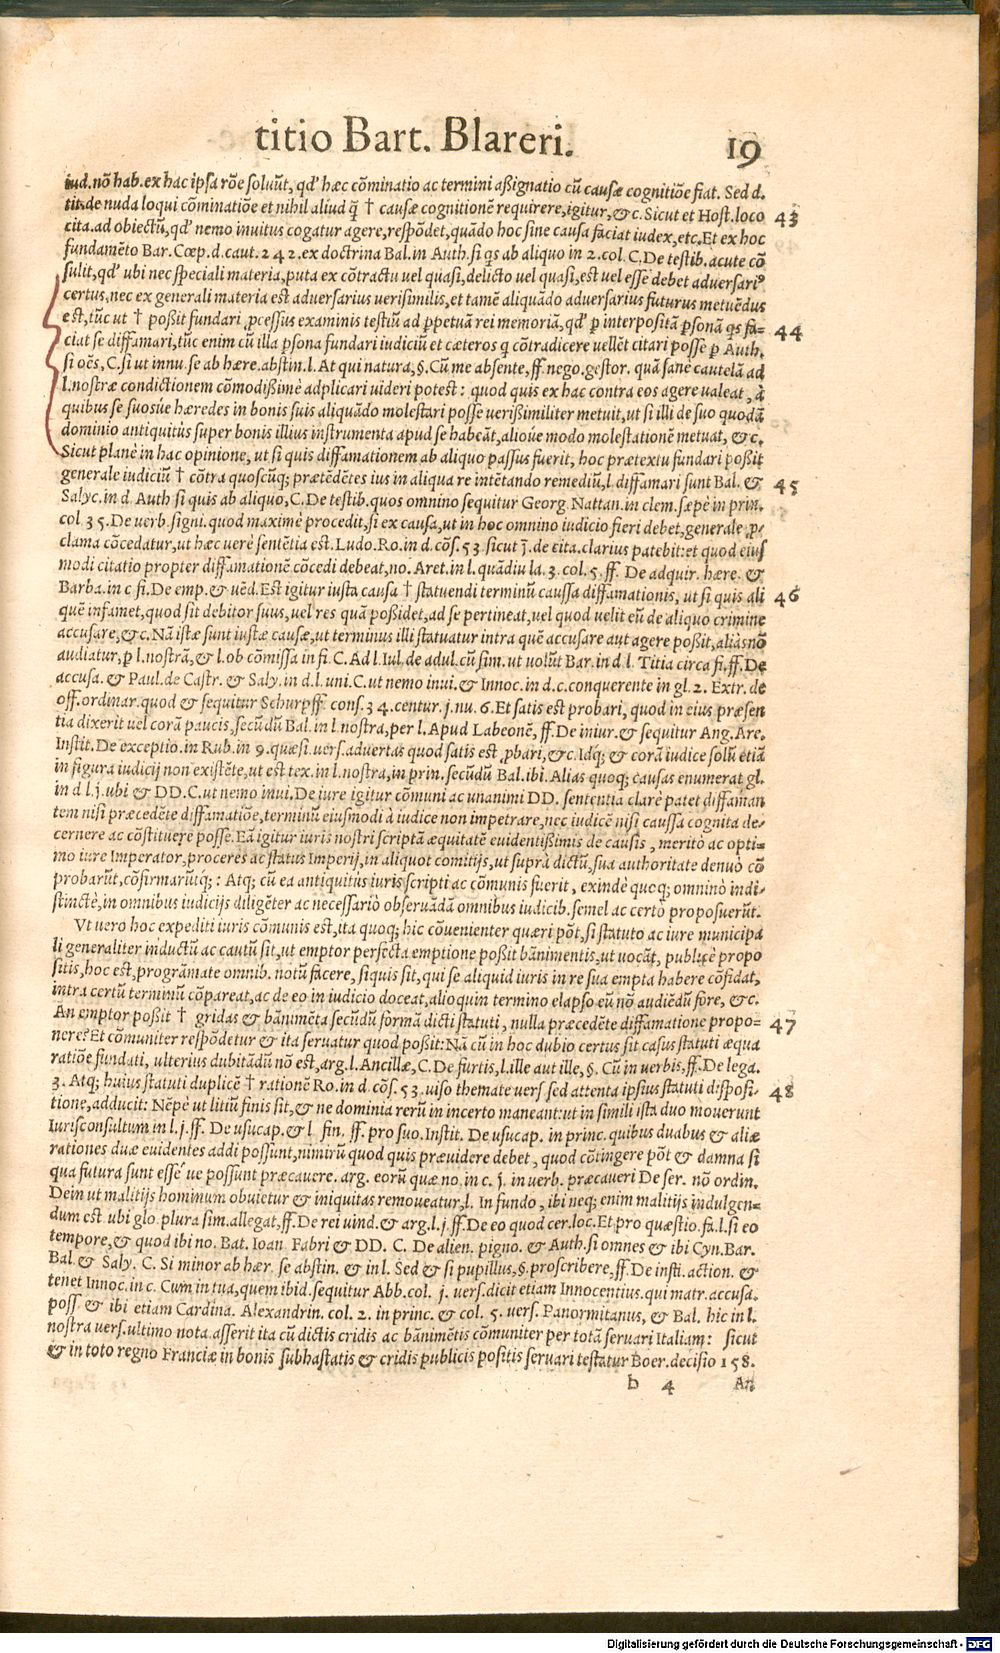 titio Bart. Blareri. 19
iud. nõ hab. ex hac ipsa rõe soluũt, qd' hæc cõminatio ac termini aßignatio cũ causæ cognitiõe fiat. Sed d.
tit. de nuda loqui cõminatiõe et nihil aliud q̃ † causæ cognitionẽ requirere, igitur, &c. Sicut et Host. loco 43
cita. ad obiectũ, qd' nemo inuitus cogatur agere, respõdet, quãdo hoc sine causa faciat iudex, etc. Et ex hoc
fundamẽto Bar. Cœp. d. caut. 242. ex doctrina Bal. in Auth. si qs ab aliquo in 2. col. C. De testib. acute cõ
sulit, qd' ubi nec speciali materia, puta ex cõtractu uel quasi, delicto uel quasi, est uel esse debet aduersariꝰ
certus, nec ex generali materia est aduersarius uerisimilis, et tamẽ aliquãdo aduersarius futurus metuẽdus
est, tũc ut † poßit fundari ꝓcessus examinis testiũ ad ꝑpetuã rei memoriã, qd' ꝑ interpositã ꝑsonã qs fa= 44
ciat se diffamari, tũc enim cũ illa ꝑsona fundari iudiciũ et cæteros q cõtradicere uellẽt citari posse ꝑ Auth.
si oẽs, C. si ut innu. se ab hære. abstin. l. At qui natura, §. Cũ me absente, ff. nego. gestor. quã sanè cautelã ad
l. nostræ condictionem cõmodißimè adplicari uideri potest: quod quis ex hac contra eos agere ualeat, à
quibus se suosúe hæredes in bonis suis aliquãdo molestari posse uerißimiliter metuit, ut si illi de suo quodã
dominio antiquitùs super bonis illius instrumenta apud se habeãt, alioúe modo molestationẽ metuat, &c.
Sicut planè in hac opinione, ut si quis diffamationem ab aliquo passus fuerit, hoc prætextu fundari poßit
generale iudiciũ † cõtra quoscũq; prætẽdẽtes ius in aliqua re intẽtando remediũ, l. diffamari sunt Bal. & 45
Salyc. in d. Auth si quis ab aliquo, C. De testib. quos omnino sequitur Georg. Nattan. in clem. sæpè in prin.
col. 35. De uerb. signi. quod maximè procedit, si ex causa, ut in hoc omnino iudicio fieri debet, generale ꝓ
clama cõcedatur, ut hæc uerè sentẽtia est. Ludo. Ro. in d. cõs. 53. sicut j. de cita. clarius patebit: et quod eius
modi citatio propter diffamationẽ cõcedi debeat, no. Aret. in l. quãdiu la. 3. col. 5. ff. De adquir. hære. &
Barba. in c fi. De emp. & uẽd. Est igitur iusta causa † statuendi terminũ caussa diffamationis, ut si quis ali 46
quẽ infamet, quod sit debitor suus, uel res quã poßidet, ad se pertineat, uel quod uelit eũ de aliquo crimine
accusare, &c. Nã istæ sunt iustæ causæ, ut terminus illi statuatur intra quẽ accusare aut agere poßit, aliàs nõ
audiatur, ꝑ l. nostrã, & l. ob cõmissa in fi. C. Ad l. Iul. de adul. cũ sim. ut uolũt Bar. in d. l. Titia circa fi. ff. De
accusa. & Paul. de Castr. & Saly. in d. l. uni. C. ut nemo inui. & Innoc. in d. c. conquerente in gl. 2. Extr. de
off. ordinar. quod & sequitur Schurpff. cons. 34. centur. j. nu. 6. Et satis est probari, quod in eius præsen
tia dixerit uel corã paucis, secũdũ Bal. in l. nostra, per l. Apud Labeonẽ, ff. De iniur. & sequitur Ang. Are.
Instit. De exceptio. in Rub. in 9. quæsi. uers. aduertas quod satis est ꝓbari, &c. Idq; & corã iudice solũ etiã
in figura iudicij non existẽte, ut est tex. in l. nostra, in prin. secũdũ Bal. ibi. Alias quoq; causas enumerat gl.
in d. l. j. ubi & DD. C. ut nemo inui. De iure igitur cõmuni ac unanimi DD. sententia clarè patet diffaman
tem nisi præcedẽte diffamatiõe, terminũ eiusmodi à iudice non impetrare, nec iudicẽ nisi caussa cognita de=
cernere ac cõstituere posse. Eã igitur iuris nostri scriptã æquitatẽ euidentißimis de causis, meritò ac opti=
mo iure Imperator, proceres ac status Imperij, in aliquot comitijs, ut suprà dictũ, sua authoritate denuò cõ
probarũt, cõfirmarũtq; : Atq; cũ ea antiquitùs iuris scripti ac cõmunis fuerit, exindè quoq; omninò indi=
stinctè, in omnibus iudicijs diligẽter ac necessariò obseruãdã omnibus iudicib. semel ac certò proposuerũt.
Vt uerò hoc expediti iuris cõmunis est, ita quoq; hic cõuenienter quæri põt, si statuto ac iure municipa
li generaliter inductũ ac cautũ sit, ut emptor perfecta emptione poßit bãnimentis, ut uocãt, publicè propo
sitis, hoc est, progrãmate omnib. notũ facere, si quis sit, qui se aliquid iuris in re sua empta habere cõfidat,
intra certũ terminũ cõpareat, ac de eo in iudicio doceat, alioquin termino elapso eũ nõ audiẽdũ fore, &c.
An emptor poßit † gridas & bãnimẽta secũdũ formã dicti statuti, nulla præcedẽte diffamatione propo= 47
nere? Et cõmuniter respõdetur & ita seruatur quod poßit: Nã cũ in hoc dubio certus sit casus statuti æqua
ratiõe fundati, ulterius dubitãdũ nõ est, arg. l. Ancillæ, C. De furtis, l. ille aut ille, §. Cũ in uerbis, ff. De lega.
3. Atq; huius statuti duplicẽ † rationẽ Ro. in d. cõs. 53. uiso themate uers sed attenta ipsius statuti disposi= 48
tione, adducit: Nẽpè ut litiũ finis sit, & ne dominia rerũ in incerto maneant: ut in simili ista duo mouerunt
Iurisconsultum in l. j. ff. De usucap. & l. fin. ff. pro suo. Instit. De usucap. in princ. quibus duabus & aliæ
rationes duæ euidentes addi possunt, nimirũ quod quis præuidere debet, quod cõtingere põt & damna si
qua futura sunt esséúe possunt præcauere. arg. eorũ quæ no. in c. j. in uerb. præcaueri De ser. nõ ordin.
Dein ut malitijs hominum obuietur & iniquitas remoueatur, l. In fundo, ibi neq; enim malitijs indulgen=
dum est ubi glo. plura sim. allegat, ff. De rei uind. & arg. l. j. ff. De eo quod cer. loc. Et pro quæstio. fa. l. si eo
tempore, & quod ibi no. Bat. Ioan. Fabri & DD. C. De alien. pigno. & Auth. si omnes & ibi Cyn. Bar.
Bal. & Saly. C. Si minor ab hær. se abstin. & in l. Sed & si pupillus, §. proscribere, ff. De insti. action. &
tenet Innoc. in c. Cum in tua, quem ibid. sequitur Abb. col. j. uers. dicit etiam Innocentius. qui matr. accusa.
poss. & ibi etiam Cardina. Alexandrin. col. 2. in princ. & col. 5. uers. Panormitanus, & Bal. hic in l.
nostra uers. ultimo nota. asserit ita cũ dictis cridis ac bãnimẽtis cõmuniter per totã seruari Italiam: sicut
& in toto regno Franciæ in bonis subhastatis & cridis publicis positis seruari testatur Boer. decisio 158.
b 4 An
Digitalisierung gefördert durch die Deutsche Forschungsgemeinschaft - DFG